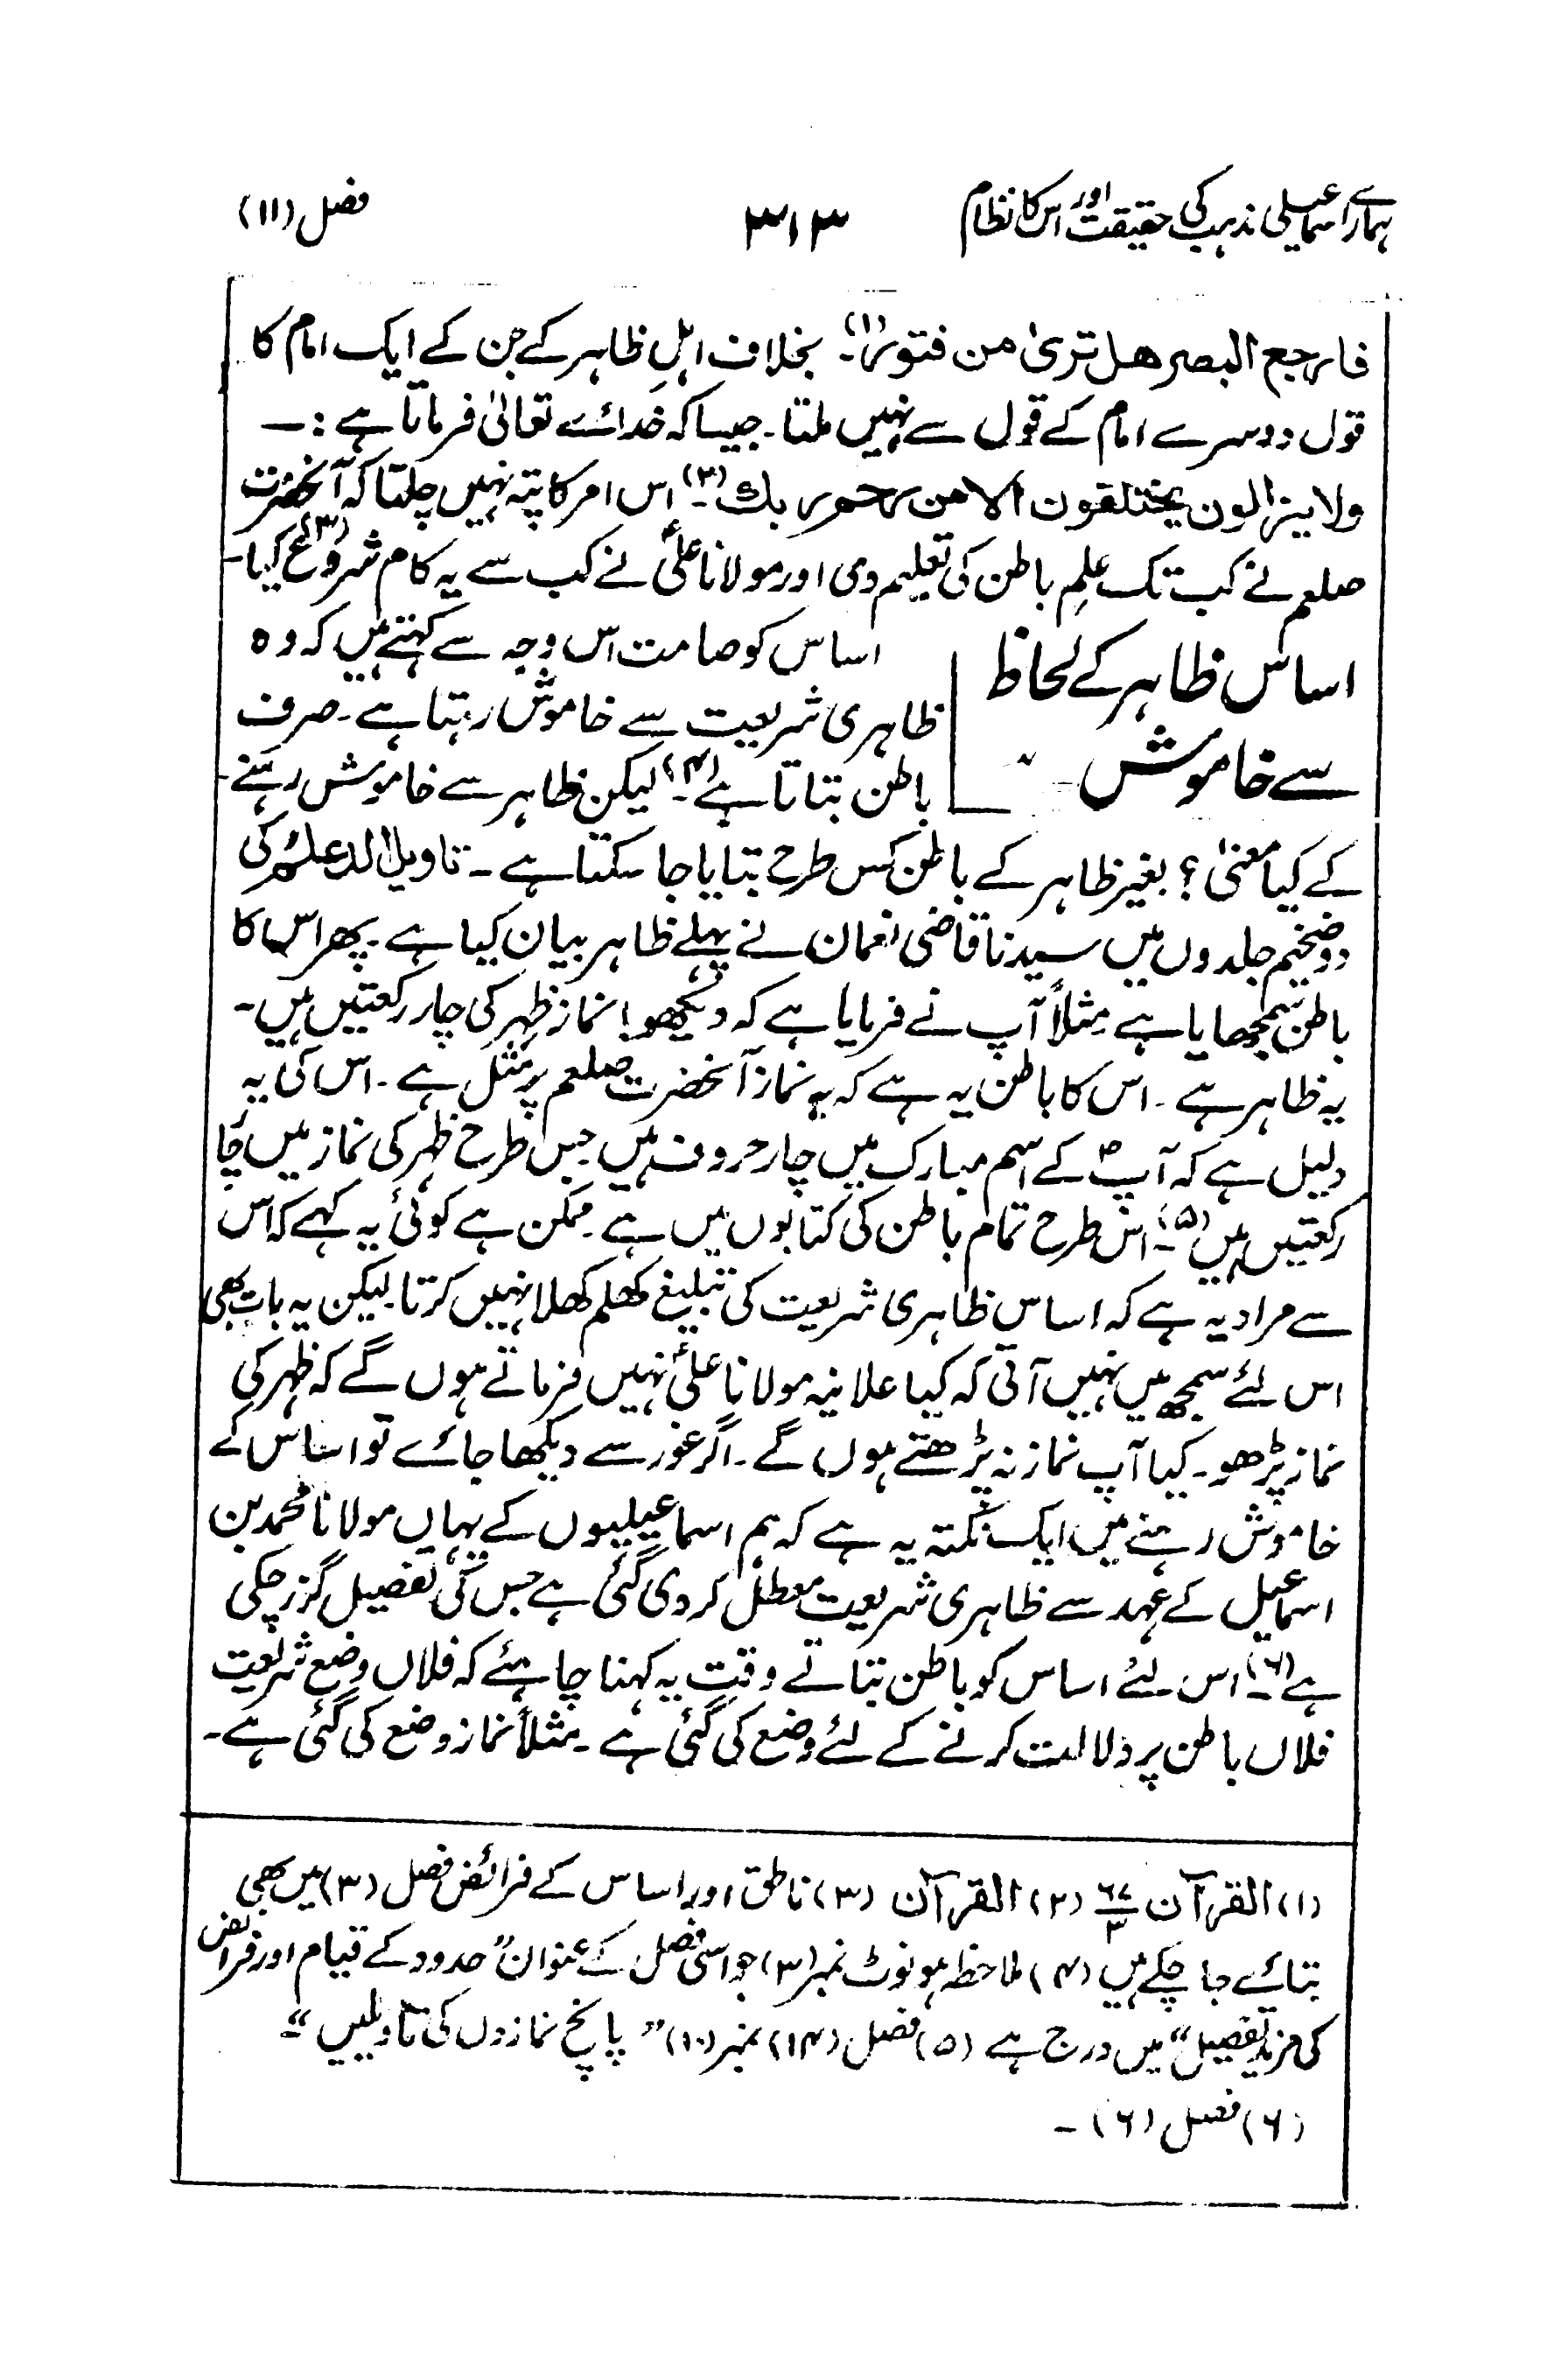 ہمارے اسماعیلی مذہب کی حقیقت اور اس کا نظام ۳۱۳ فصل (۱۱)
فارجع البصر هل تریٰ من فتور(۱)۔ بخلاف اہلِ ظاہر کے جن کے ایک امام کا
قول دوسرے امام کے قول سے نہیں ملتا۔ جیسا کہ خدائے تعالیٰ فرماتا ہے :—
ولا یزالون یختلفون الا من رحم ربك(۲)۔ اس امر کا پتہ نہیں چلتا کہ آنحضرت
صلعم نے کب تک علمِ باطن کی تعلیم دی اور مولانا علیؑ نے کب سے یہ کام شروع کیا(۳)۔
اساس ظاہر کے لحاظ
سے خاموش۔
اساس کو صامت اس وجہ سے کہتے ہیں کہ وہ
ظاہری شریعت سے خاموش رہتا ہے۔ صرف
باطن بتاتا ہے(۴)۔ لیکن ظاہر سے خاموش رہنے
کے کیا معنیٰ؟ بغیر ظاہر کے باطن کس طرح بتایا جا سکتا ہے۔ تاویل الدعائم کی
دو ضخیم جلدوں میں سیدنا قاضی نعمان نے پہلے ظاہر بیان کیا ہے۔ پھر اس کا
باطن سمجھایا ہے مثلاً آپ نے فرمایا ہے کہ دیکھو! نماز ظہر کی چار رکعتیں ہیں۔
یہ ظاہر ہے۔ اس کا باطن یہ ہے کہ یہ نماز آنحضرت صلعم پر مثل ہے۔ اس کی یہ
دلیل ہے کہ آپؐ کے اسم مبارک میں چار حروف ہیں جس طرح ظہر کی نماز میں چار
رکعتیں ہیں(۵)۔ اس طرح تمام باطن کی کتابوں میں ہے۔ ممکن ہے کوئی یہ کہے کہ اس
سے مراد یہ ہے کہ اساس ظاہری شریعت کی تبلیغ کھلم کھلا نہیں کرتا۔ لیکن یہ بات بھی
اس لئے سمجھ میں نہیں آتی کہ کیا علانیہ مولانا علیؑ نہیں فرماتے ہوں گے کہ ظہر کی
نماز پڑھو۔ کیا آپ نماز نہ پڑھتے ہوں گے۔ اگر غور سے دیکھا جائے تو اساس کے
خاموش رہنے میں ایک نکتہ یہ ہے کہ ہم اسماعیلیوں کے یہاں مولانا محمد بن
اسماعیل کے عہد سے ظاہری شریعت معطل کر دی گئی ہے جس کی تفصیل گزر چکی
ہے(۶)۔ اس لئے اساس کو باطن بتاتے وقت یہ کہنا چاہئے کہ فلاں وضع شریعت
فلاں باطن پر دلالت کرنے کے لئے وضع کی گئی ہے۔ مثلاً نماز وضع کی گئی ہے۔
(۱) القرآن ۶۷/۳ (۲) القرآن (۳) ناطق اور اساس کے فرائض فصل (۳) میں بھی
بتائے جا چکے ہیں (۴) ملاحظہ ہو نوٹ نمبر (۳) جو اسی فصل کے عنوان ”حدود کے قیام اور فرائض
کی مزید تفصیل“ میں درج ہے (۵) فصل (۱۴) نمبر (۱۰) ”پانچ نمازوں کی تاویلیں“۔
(۶) فصل (۶)۔